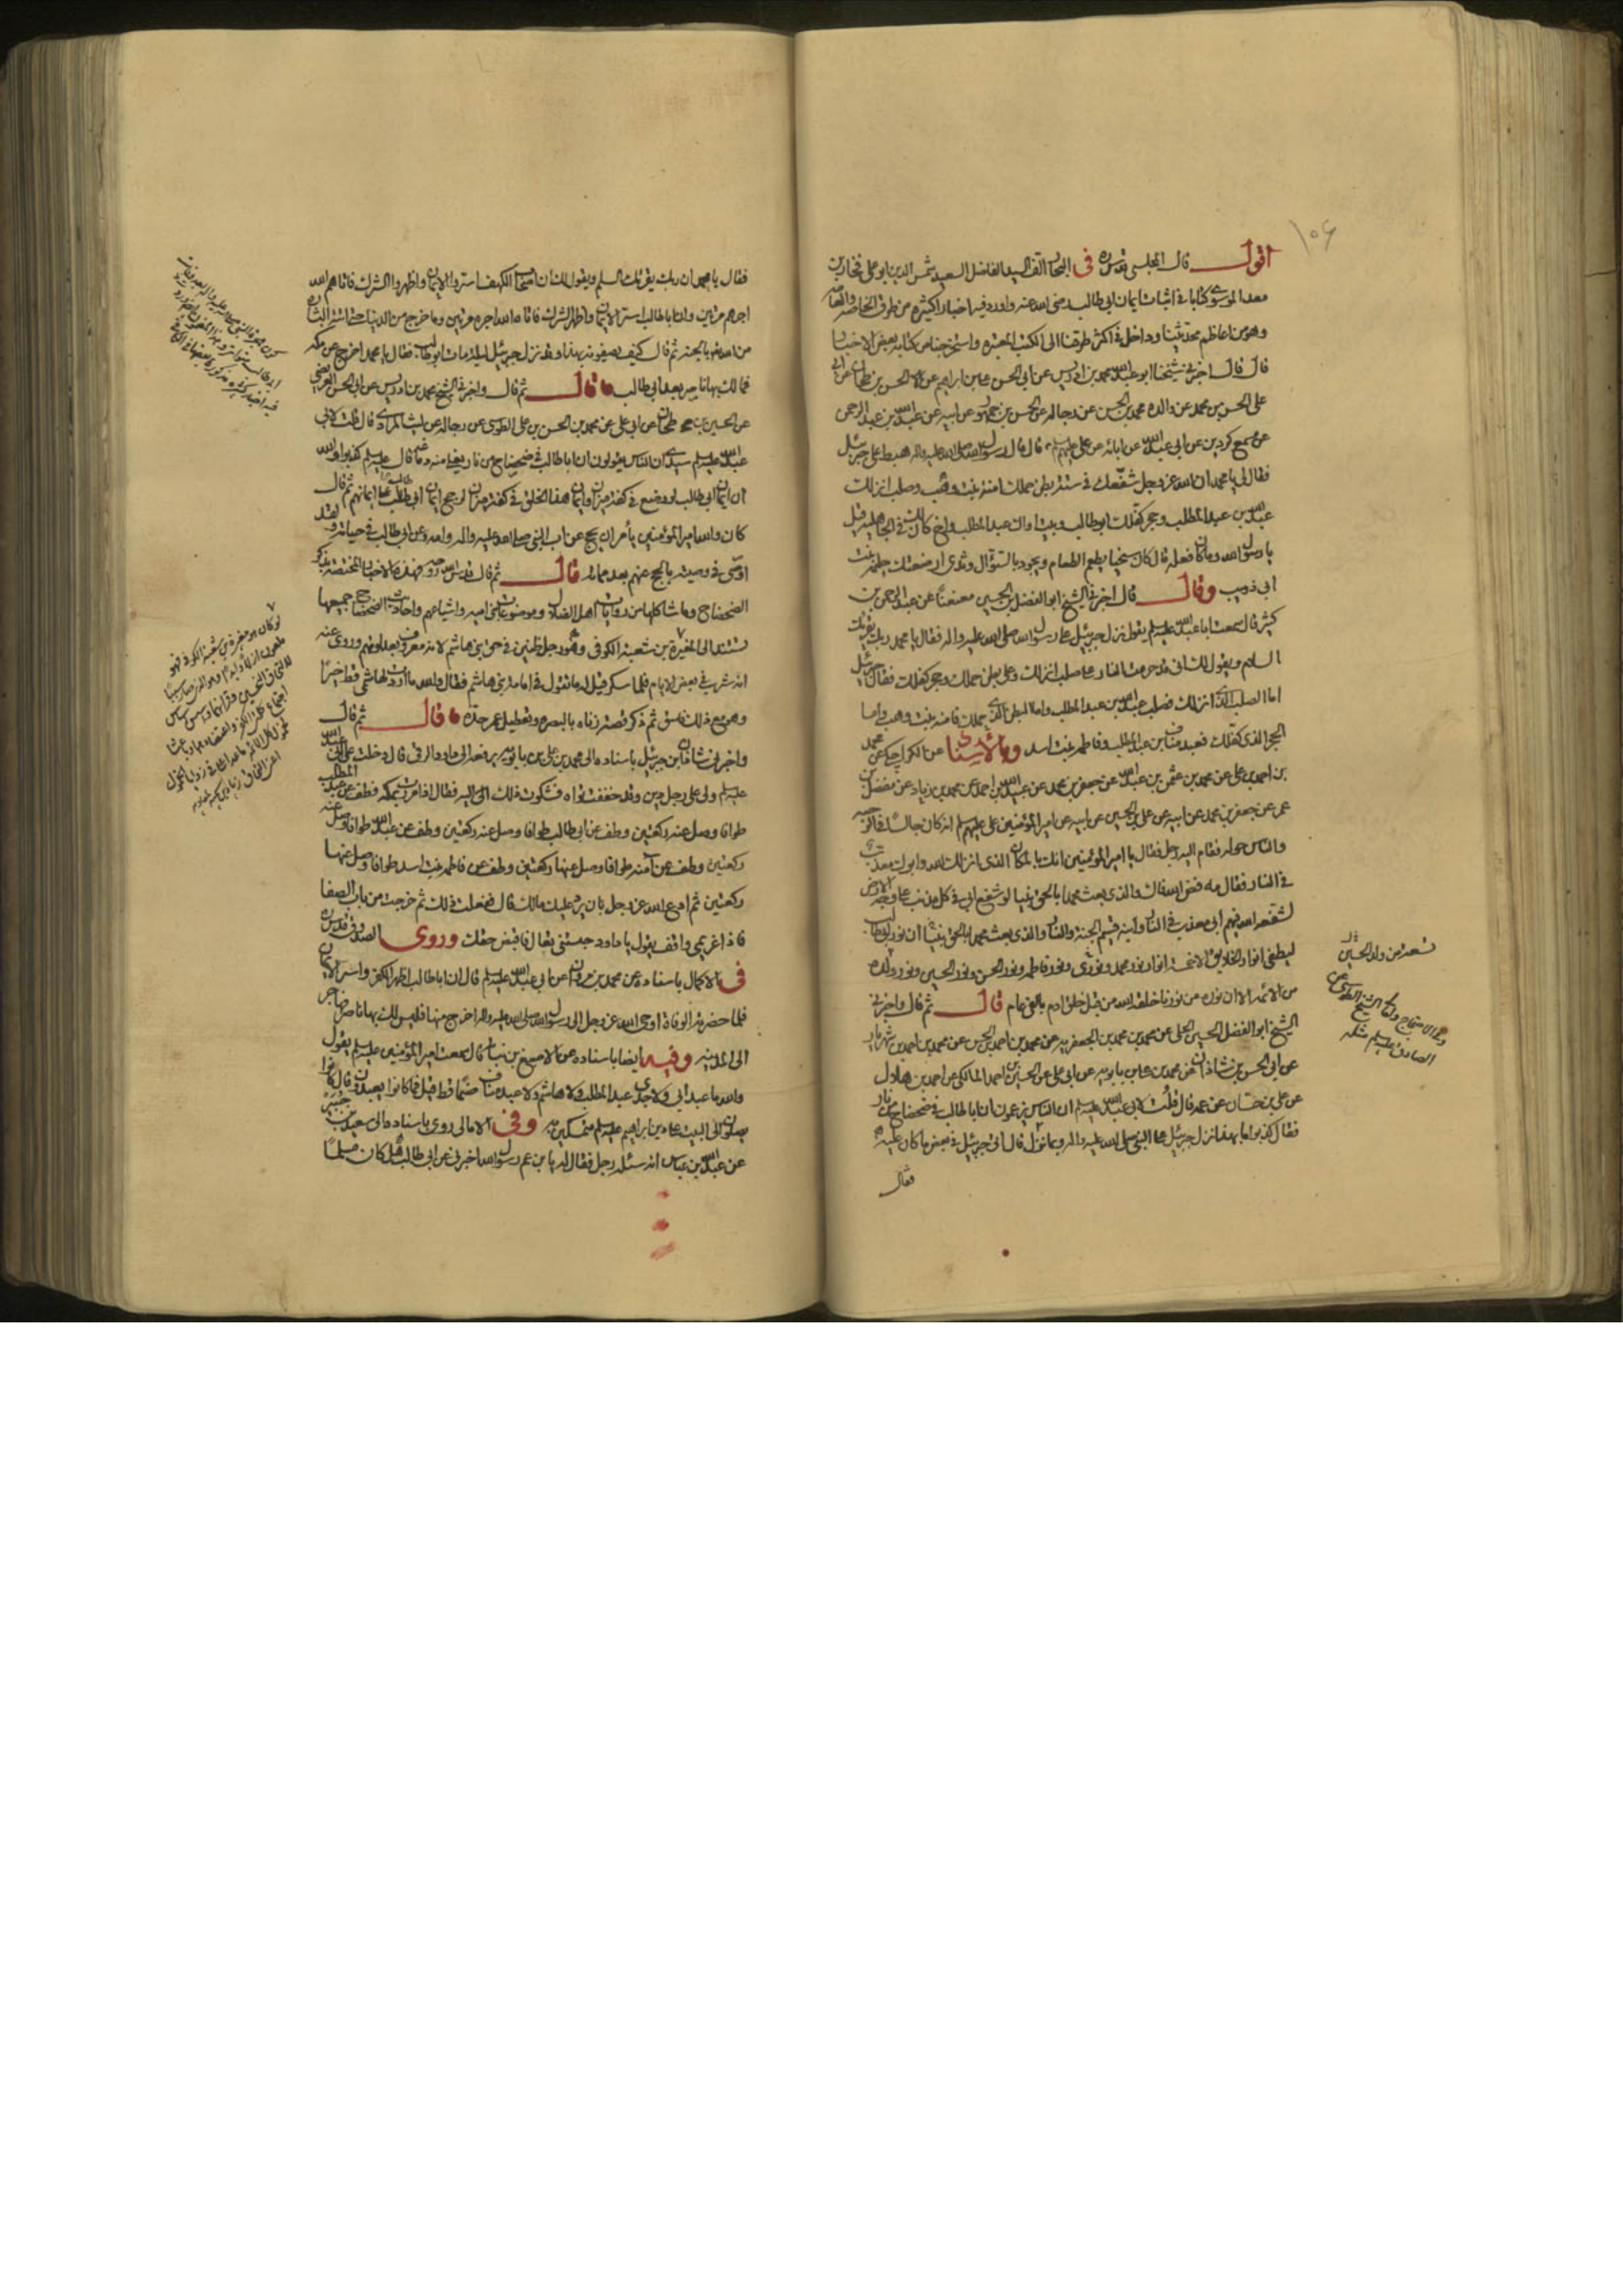 ١٠٦
اقول قال المجلسي قدس سره في البحار الف السيد الفاضل السعيد شمس الدين ابو علي فخار بن
معد الموسوي كتابا في اثبات ايمان ابي طالب رضي الله عنه واورد فيه اخبارا كثيرة من طرق الخاصة والعامة
وهو من اعاظم محدثينا وداخل في اكثر طرقنا الى الكتب المعتبرة واستخرجنا من كتابه بعض الاخبار
قال قال اخبرني شيخنا ابو عبد الله محمد بن ادريس عن ابي الحسن علي بن ابراهيم عن الحسن بن طحال عن ابي
علي الحسن بن محمد عن والده محمد بن الحسن عن رجاله عن الحسن بن جمهور عن ابيه عن عبد الله بن عبد الرحمن
عن مسمع كردين عن ابي عبد الله عن ابائه عن علي عليهم قال قال رسول الله صلى الله عليه واله هبط علي جبرئيل
فقال لي يا محمد ان الله عز وجل شفعك في ستة بطن حملتك امنة بنت وهب وصلب انزلك
عبد الله بن عبد المطلب وحجر كفلك ابو طالب وبيت اواك عبد المطلب واخ كان لك في الجاهلية قيل
يا رسول الله وما كان فعله قال كان سخيا يطعم الطعام ويجود بالنوال وثدي ارضعتك حليمة بنت
ابي ذويب وقال قال اخبرني الشيخ ابو الفضل بن الحسين معنعنا عن عبد الرحمن بن
كثير قال سمعت ابا عبد الله عليه السلام يقول نزل جبرئيل على رسول الله صلى الله عليه واله فقال يا محمد ربك يقرئك
السلام ويقول لك اني قد حرمت النار على صلب انزلك وعلى بطن حملك وحجر كفلك فقال جبرئيل
اما الصلب الذي انزلك فصلب عبد الله بن عبد المطلب واما البطن الذي حملك فامنة بنت وهب واما
الحجر الذي كفلك فعبد مناف بن عبد المطلب وفاطمة بنت اسد وبالاسناد عن الكراجكي عن محمد
بن احمد بن علي عن محمد بن عثمن بن عبد الله عن جعفر بن محمد عن عبيد الله بن احمد عن محمد بن زياد عن مفضل بن
عمر عن جعفر بن محمد عن ابيه عن علي بن الحسين عن ابيه عن امير المؤمنين علي عليهم انه كان جالسا في الرحبة
والناس حوله فقام اليه رجل فقال يا امير المؤمنين انك بالمكان الذي انزلك الله وابوك معذب
في النار فقال مه فض الله فاك والذي بعث محمدا بالحق نبيا لو شفع ابي في كل مذنب على وجه الارض
لشفعه الله فيهم ابي معذب في النار وابنه قسيم الجنة والنار والذي بعث محمدا بالحق نبيا ان نور ابي طالب
ليطفي انوار الخلايق الا خمسة انوار نور محمد ونوري ونور فاطمة ونور الحسن ونور الحسين ونور ولده
من الائمة الا ان نوره من نورنا خلقه الله من قبل خلق ادم بالفي عام قال ثم قال واخبرني
الشيخ ابو الفضل الحسين الحلي عن محمد بن محمد بن الجعفرية عن محمد بن احمد بن الحسن عن محمد بن احمد بن شهريار
عن ابي الحسن بن شاذان عن محمد بن علي بن بابويه عن ابي علي عن الحسين بن احمد المالكي عن احمد بن هلال
عن علي بن حسان عن عمه قال قلت لابي عبد الله عليه السلام ان الناس يزعمون ان ابا طالب في ضحضاح من نار
فقال كذبوا ما بهذا نزل جبرئيل على النبي صلى الله عليه واله وبما نزل قال اتى جبرئيل في بعض ما كان عليه
فقال
تسعة من ولد الحسين
الصادق عليه السلام مثله
فقال يا محمد ان ربك يقرئك السلم ويقول لك ان اصحاب الكهف اسروا الايمان واظهروا الشرك فاتاهم الله
اجرهم مرتين وان ابا طالب اسر الايمان واظهر الشرك فاتاه الله اجره مرتين وما خرج من الدنيا حتى اتته البشارة
من الله بالجنة ثم قال كيف يصفونه بهذا وقد نزل جبرئيل ليلة مات ابو طالب فقال يا محمد اخرج عن مكة
فما لك بها ناصر بعد ابي طالب قال ثم قال واخبرني الشيخ محمد بن ادريس عن ابي الحسن العريضي
عن الحسين بن طحال عن ابي علي عن محمد بن الحسن بن علي الطوسي عن رجاله عن ليث المرادي قال قلت لابي
عبد الله عليه السلام سيدي ان الناس يقولون ان ابا طالب في ضحضاح من نار يغلي منه دماغه قال عليه السلام كذبوا والله
ان ايمان ابي طالب لو وضع في كفة ميزان وايمان هذا الخلق في كفة ميزان لرجح ايمان ابي طالب على ايمانهم ثم قال
كان والله امير المؤمنين يأمر ان يحج عن اب النبي صلى الله عليه واله وامه وعن ابي طالب في حياته ولقد
اوصى في وصيته بالحج عنهم بعد مماته قال ثم قال قدس الله روحه فهذه الاخبار المختصة بذكر
الضحضاح وما شاكلها من روايات اهل الضلال وموضوعات بني امية واشياعهم واحاديث الضحضاح جميعها
تستند الى المغيرة بن شعبة الكوفي وهو رجل ظنين في حق بني هاشم لانه معروف بعداوتهم وروي عنه
انه شرب في بعض الايام فلما سكر قيل له ما تقول في امامة بني هاشم فقال والله ما اردت لهاشمي قط خيرا
وهو مع ذلك فاسق ثم ذكر قصة زناه بالبصرة وتعطيل عمر حده قال ثم قال
واخبرني شاذان بن جبرئيل باسناده الى محمد بن علي بن بابويه يرفعه الى داود الرقي قال دخلت على ابي عبد الله
عليه السلام ولي على رجل دين وقد خفت تواه فشكوت ذلك اليه فقال اذا مررت بمكة فطف عن عبد المطلب
طوافا وصل عنه ركعتين وطف عن ابي طالب طوافا وصل عنه ركعتين وطف عن عبد الله طوافا وصل عنه
ركعتين وطف عن آمنة طوافا وصل عنها ركعتين وطف عن فاطمة بنت اسد طوافا وصل عنها
ركعتين ثم ادع الله عز وجل بان يرد عليك مالك قال ففعلت ذلك ثم خرجت من باب الصفا
فاذا غريمي واقف يقول يا داود حبستني تعال فاقبض حقك وروى الصدوق قدس سره
في الاكمال باسناده عن محمد بن مروان عن ابي عبد الله عليه السلام قال ان ابا طالب اظهر الكفر واسر الايمان
فلما حضرته الوفاة اوحى الله عز وجل الى رسول الله صلى الله عليه واله اخرج منها فليس لك بها ناصر فهاجر
الى المدينة وفيه ايضا باسناده عن الاصبغ بن نباتة قال سمعت امير المؤمنين عليه السلام يقول
والله ما عبد ابي ولا جدي عبد المطلب ولا هاشم ولا عبد مناف صنما قط قيل فما كانوا يعبدون قال كانوا
يصلون الى البيت على دين ابراهيم عليه السلام متمسكين به وفي الامالي روى باسناده الى سعيد بن جبير
عن عبد الله بن عباس انه سئله رجل فقال له يا بن عم رسول الله اخبرني عن ابي طالب هل كان مسلما